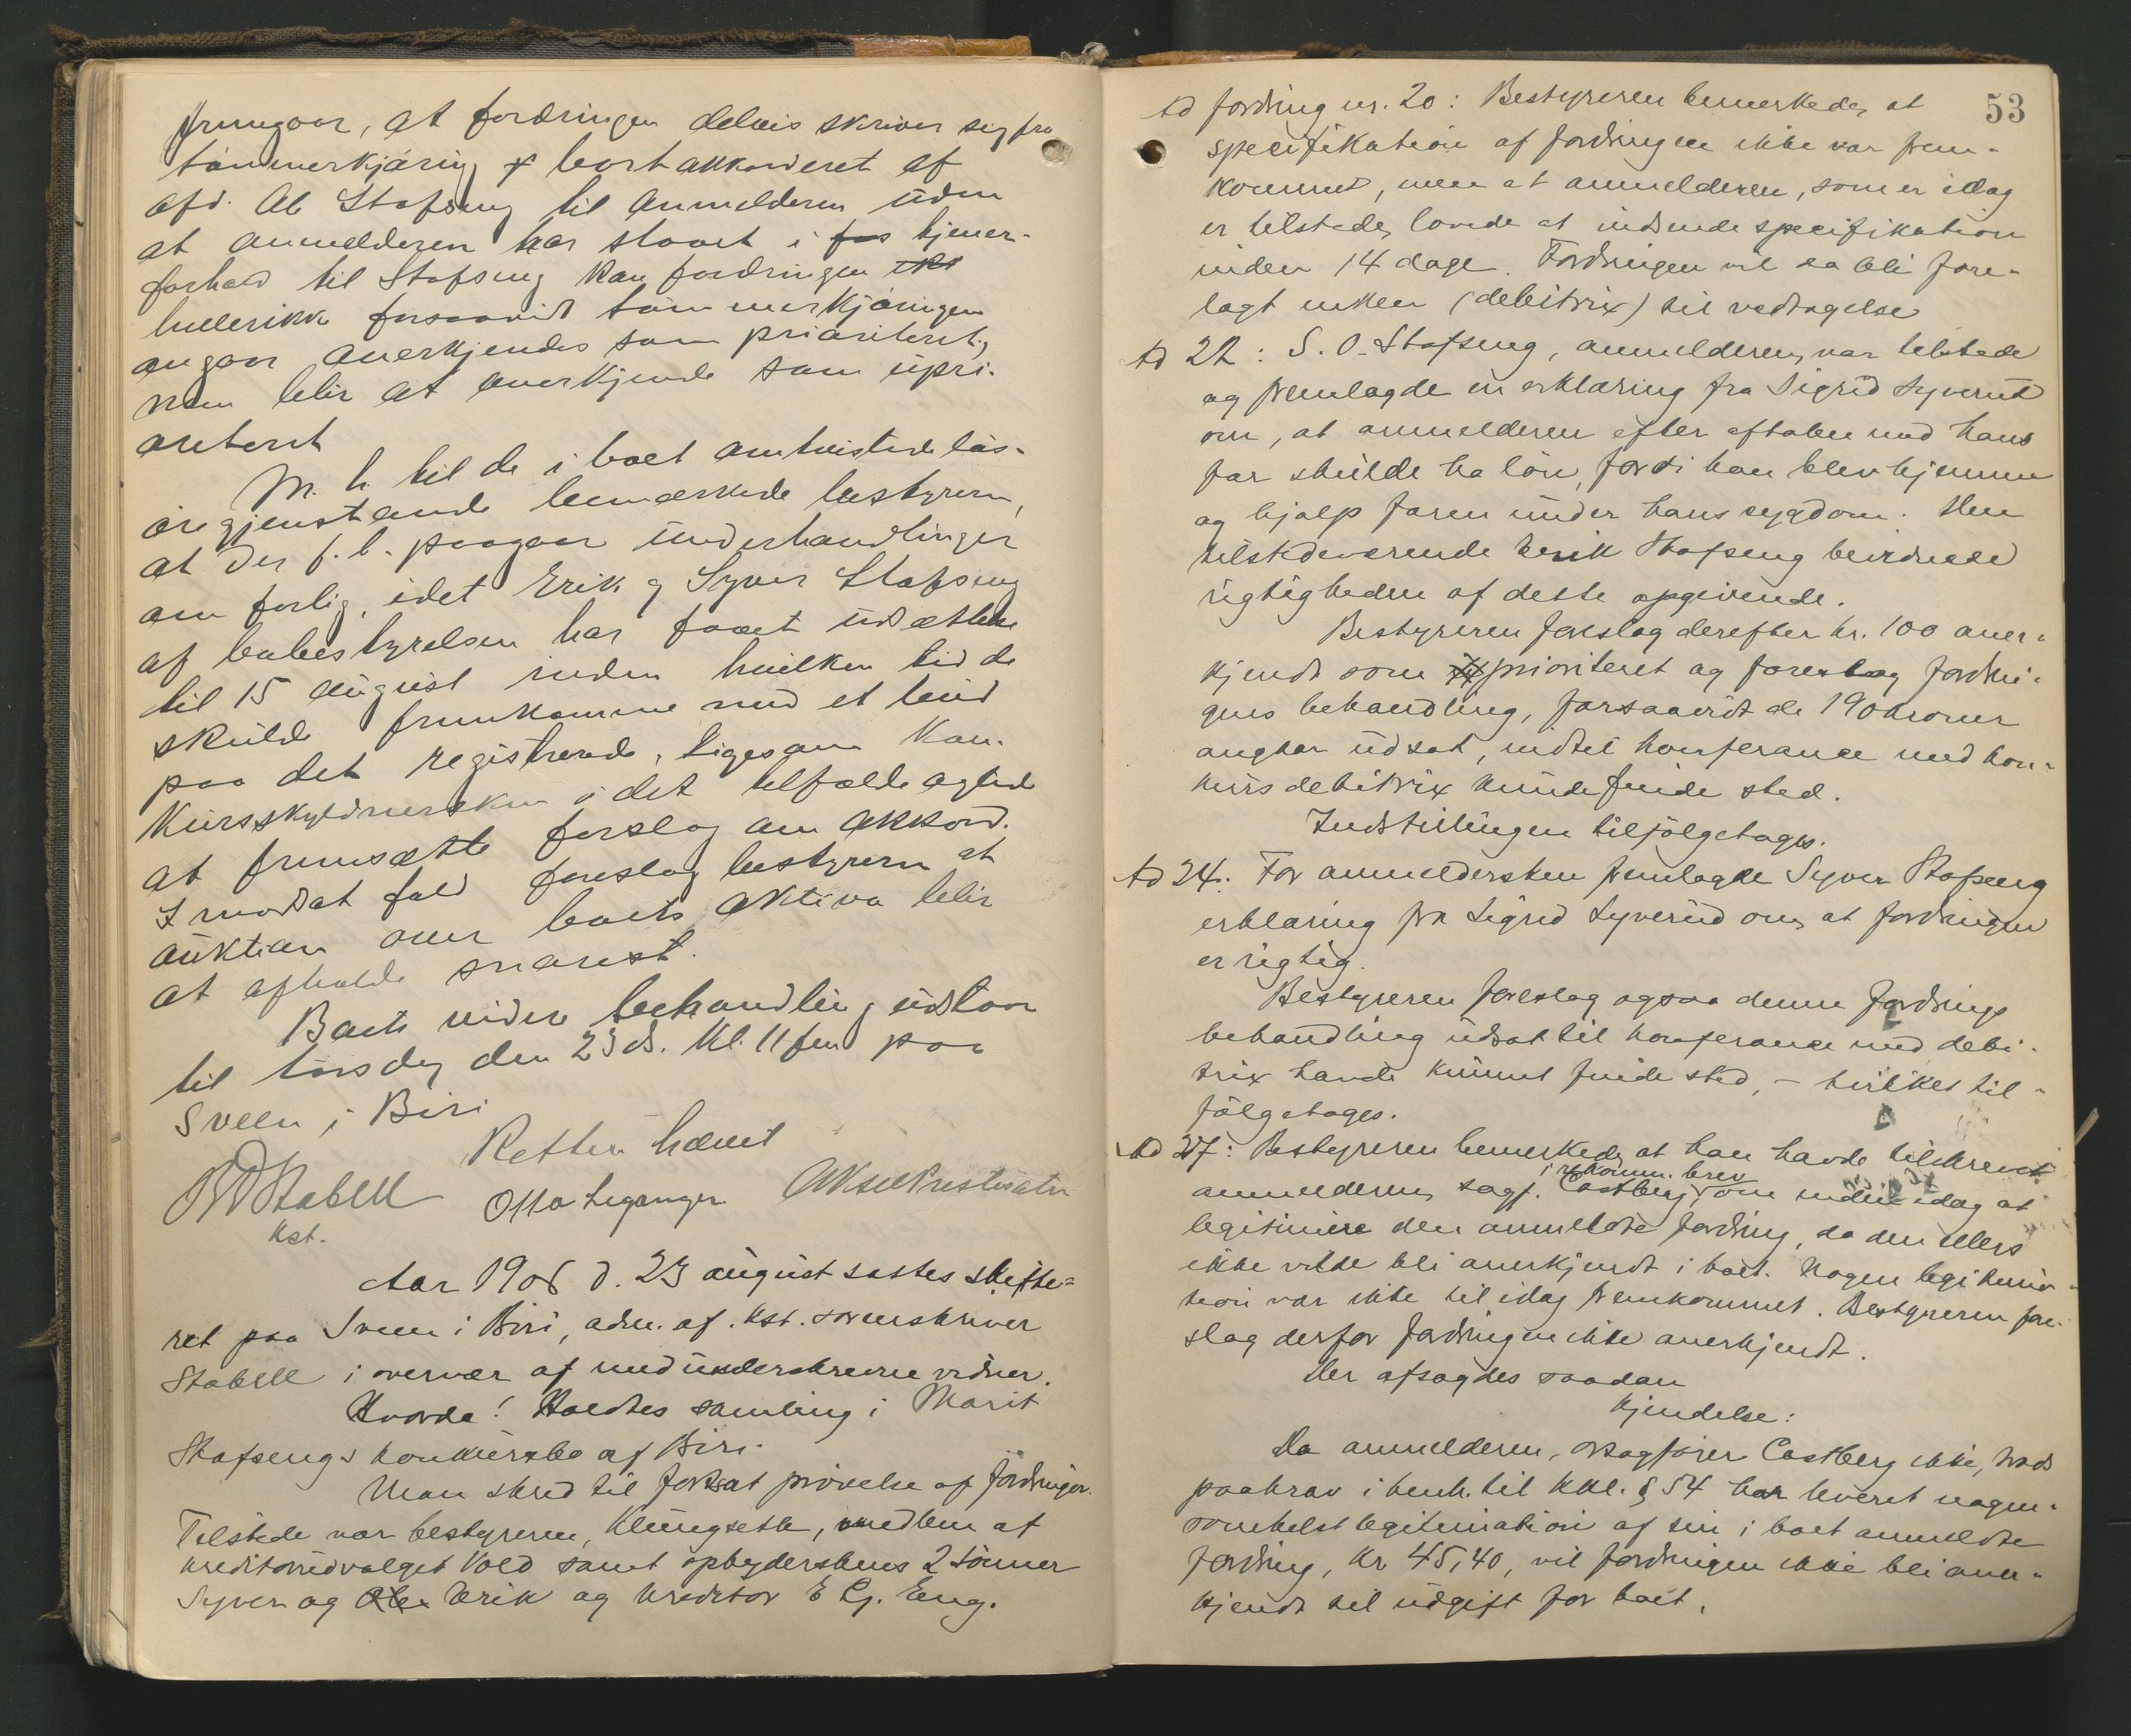 fremgaar, at fordringen delvis skriver sig fra
tømmerkjøring bortakkorderet af
afd. Ole Stafseng til Anmelderen uden
at anmelderen har staaet i tjener-
forhold til Stafseng kan fordringen
hellerikke forsaavidt tømmerkjøringen
angaar anerkjendes som prioriteret,
men blir at anerkjende som upri-
oriteret
M. h. til de i boet omtvistede løs-
øregjenstande bemærkede bestyreren,
at der f. t. paagaar underhandlinger
om forlig, idet Erik og Syver Stafseng
af bobestyrelsen har faaet udsættelse
til 15 august inden hvilken tid de
skulde fremkomme med et bud
paa det registrerede, ligesom kon-
kursskyldnersken i det tilfælde agtede
at fremsætte forslag om akkord.
I modsat fald foreslog bestyreren at
auktion over boets aktiva blir
at afholde snarest.
Boets videre behandling udstaar
til torsdag den 23 ds. kl. 11 fm paa
Sveen i Biri
Retten hævet
Stabell Otto Leganger Aksel
kst.
Aar 1906 d. 23 august sattes skifte-
ret paa Sveen i Biri, adm. af kst. sorenskriver
Stabell i overvær af medunderskrevne vidner.
Hvorda! Holdtes samling i Marit
Stafsengs konkursbo af Biri.
Man skred til fortsat prøvelse af fordringer.
Tilstede var bestyreren, Klungseth, medlem af
kreditorudvalget Vold samt opbyderskens 2 sønner
Syver og Erik og kreditor E Eng.
53
Ad fordring nr. 20: Bestyreren bemerkede, at
specifikation af fordringen ikke var frem-
kommet, men at anmelderen, som er idag
er tilstede, lovede at indsende specifikation
inden 14 dage. Fordringen vil da bli fore-
lagt enken (debitrix) til vedtagelse
Ad 22: S. O. Stafseng, anmelderen, var tilstede
og fremlagde en erklæring fra Sigrid Syverud
om, at anmelderen efter aftale med hans
far skulde ha løn, fordi han blev hjemme
og hjalp faren under hans sygdom. Den
tilstedeværende Erik Stafseng bevidnede
rigtigheden af dette opgivende.
Bestyreren foreslog derefter kr. 100 aner-
kjendt som prioriteret og foreslog fordrin-
gens behandling, forsaavidt de 190 kroner
angaar udsat, indtil konferance med kon-
kursdebitrix kunde finde sted.
Indstillingen tilfølgetages.
Ad 24: For anmeldersken fremlagde Syver Stafseng
erklæring fra Sigrid Syverud om, at fordringen
er rigtig.
Bestyreren foreslog ogsaa denne fordrings
behandling udsat til konferance med debi-
trix havde kunnet finde sted, – hvilket til-
følgetages.
Ad 27: Bestyreren bemerkede, at han havde tilskrevet
i rekomm. brev
anmelderen, sagf. Castberg, om inden idag at
legitimere den anmeldte fordring, da den ellers
ikke vilde bli anerkjendt i boet. Nogen legitima-
tion var ikke til idag fremkommet. Bestyreren fore-
slog derfor fordringen ikke anerkjendt.
Der afsagdes saadan
Kjendelse:
Da anmelderen, o.r.sagfører Castberg ikke, trods
paakrav i henh. til kkl. § 54 har leveret nogen-
somhelst legitimation af sin i boet anmeldte
fordring, kr 45,40, vil fordringen ikke bli aner-
kjendt til udgift for boet.